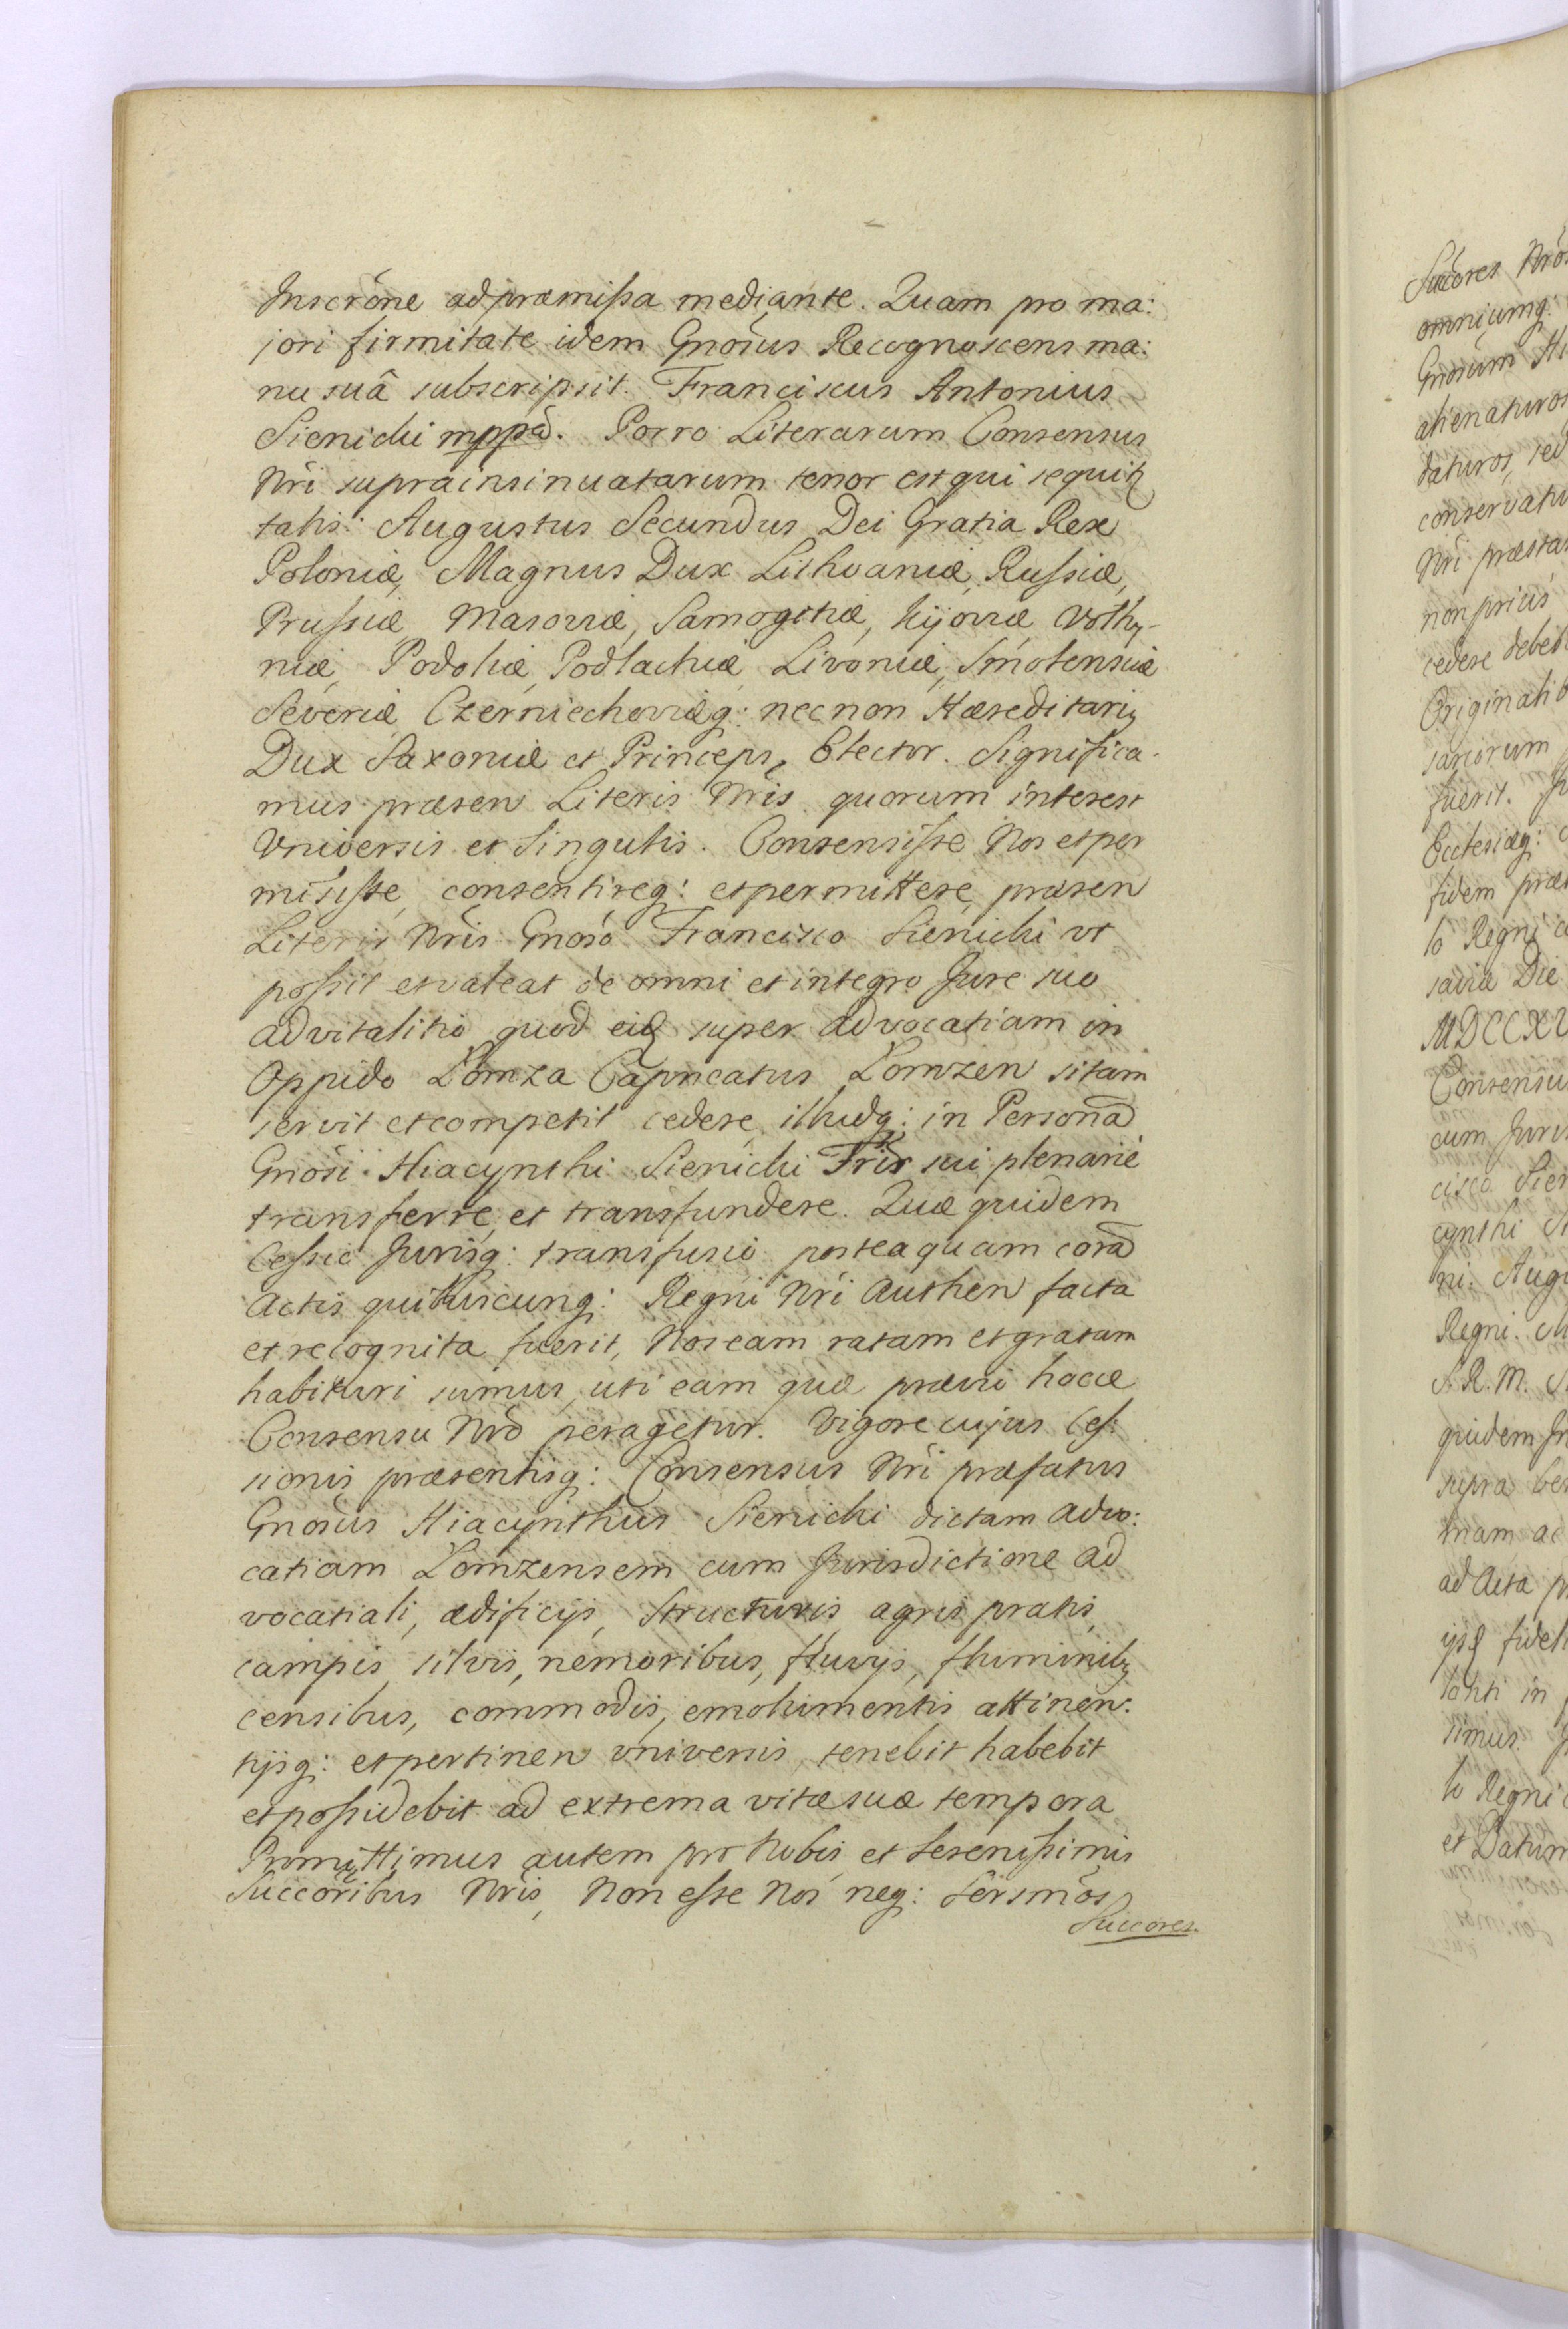 Inscrõne ad præmissa mediante. Quam pro ma:
jori firmitate idem Gnosus Recognoscens ma:
nu suâ subscripsit. Franciscus Antonius
Sienicki mppã. Porro Literarum Consensus
Nri suprainsinuatarum tenor est qui sequitꝛ
talis: Augustus Secundus Dei Gratia Rex
Poloniæ, Magnus Dux Lithvaniæ, Russiæ,
Prussiæ Masoviæ, Samogitiæ, Kijoviæ Volhy-
niæ, Podoliæ, Podlachiæ Livoniæ, Smolensciæ
Severiæ Czerniechoviæq: necnon Hæreditariꝰ
Dux Saxoniæ et Princeps, Elector. Significa-
mus præsen Literis Nris quorum interest
Vniversis et Singulis. Consensisse Nos et per
misisse, consentireq: et permittere præsen
Literis Nris Gnoso Francisco Sienicki vt
possit et valeat de omni et integro Jure suo
advitalitio quod eid super advocatiam in
Oppido Łomza Capneatus Łomzen sitam
servit et competit cedere, illudq: in Personã
Gnosi Hiacynthi Sienicki Fris sui plenariè
transferre, et transfundere. Quæ quidem
Cessio Jurisq: transfusio posteaquam corã
Actis quibuscunq: Regni Nri Authen facta
et recognita fuerit, Nos eam ratam et gratam
habituri sumus, uti eam quæ prævio hocce
Consensu Nro peragetur. Vigore cujus Ces:
sionis præsentisq: Consensus Nri præfatus
Gnosus Hiacynthus Sienicki dictam advo:
catiam Łomzensem cum Jurisdictione ad
vocatiali, ædificijs, Structuris agris pratis,
campis, silvis, nemoribus, fluvijs, fluminibꝰ
censibus, commodis, emolumentis attinen:
tijsq: et pertinen vniversis, tenebit habebit
et possidebit ad extrema vitæ suæ tempora
Promittimus autem pro Nobis et Serenissimis
Succoribus Nris, Non esse Nos neq: Sersmos
Succores.
Succores Nros
omniumq:
Gnosum Hi
alienaturos
daturos, sed
conservatu
Nri præsta
non priùs
cedere debeb
Originalib
sariorum
fuerit.
Ecclesiæq:
fidem præ
lo Regni
saviæ Die
MDCCXV
Consensu
cum Juris
cisco Sien
cynthi
ni. Augu
Regni. M
S. R. M.
quidem
supra
mam ac
ad Acta p
ijsq fidel
tanti in
simus.
lo Regni
et Datum